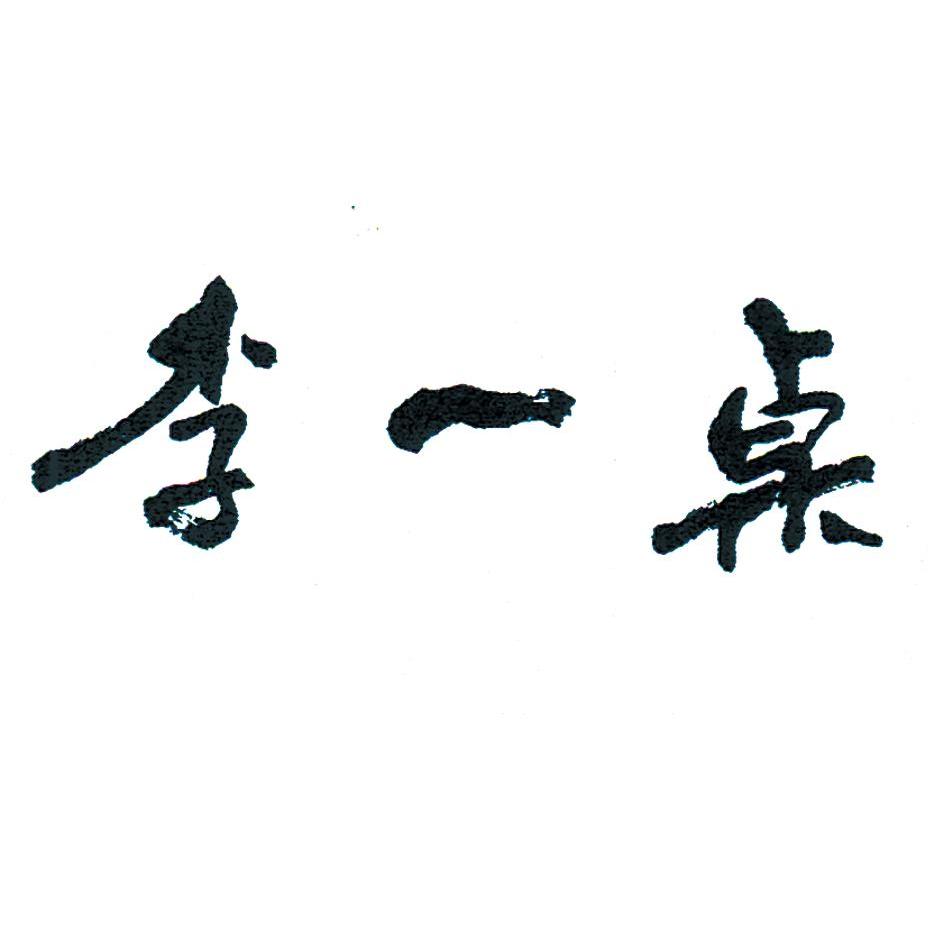 李一桌